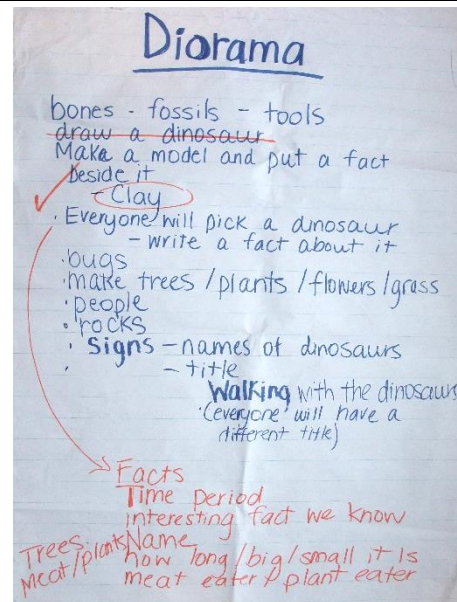 Diorama
bones - fossils - tools
draw a dinosaur
Make a model and put a fact
beside it
- Clay
· Everyone will pick a dinosaur
- write a fact about it
· bugs
· make trees / plants / flowers / grass
· people
· rocks
· Signs - names of dinosaurs
· - title
Walking with the dinosaurs
· (everyone will have a
different title)
Facts
Time period
interesting fact we know
Name
how long / big / small it is
meat eater / plant eater
Trees
Meat/plants